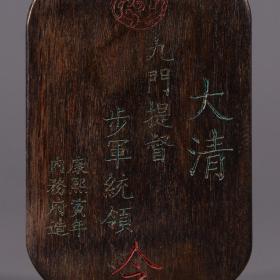 大清
九門提督
步軍統領
康熙寅年
內務府造
令